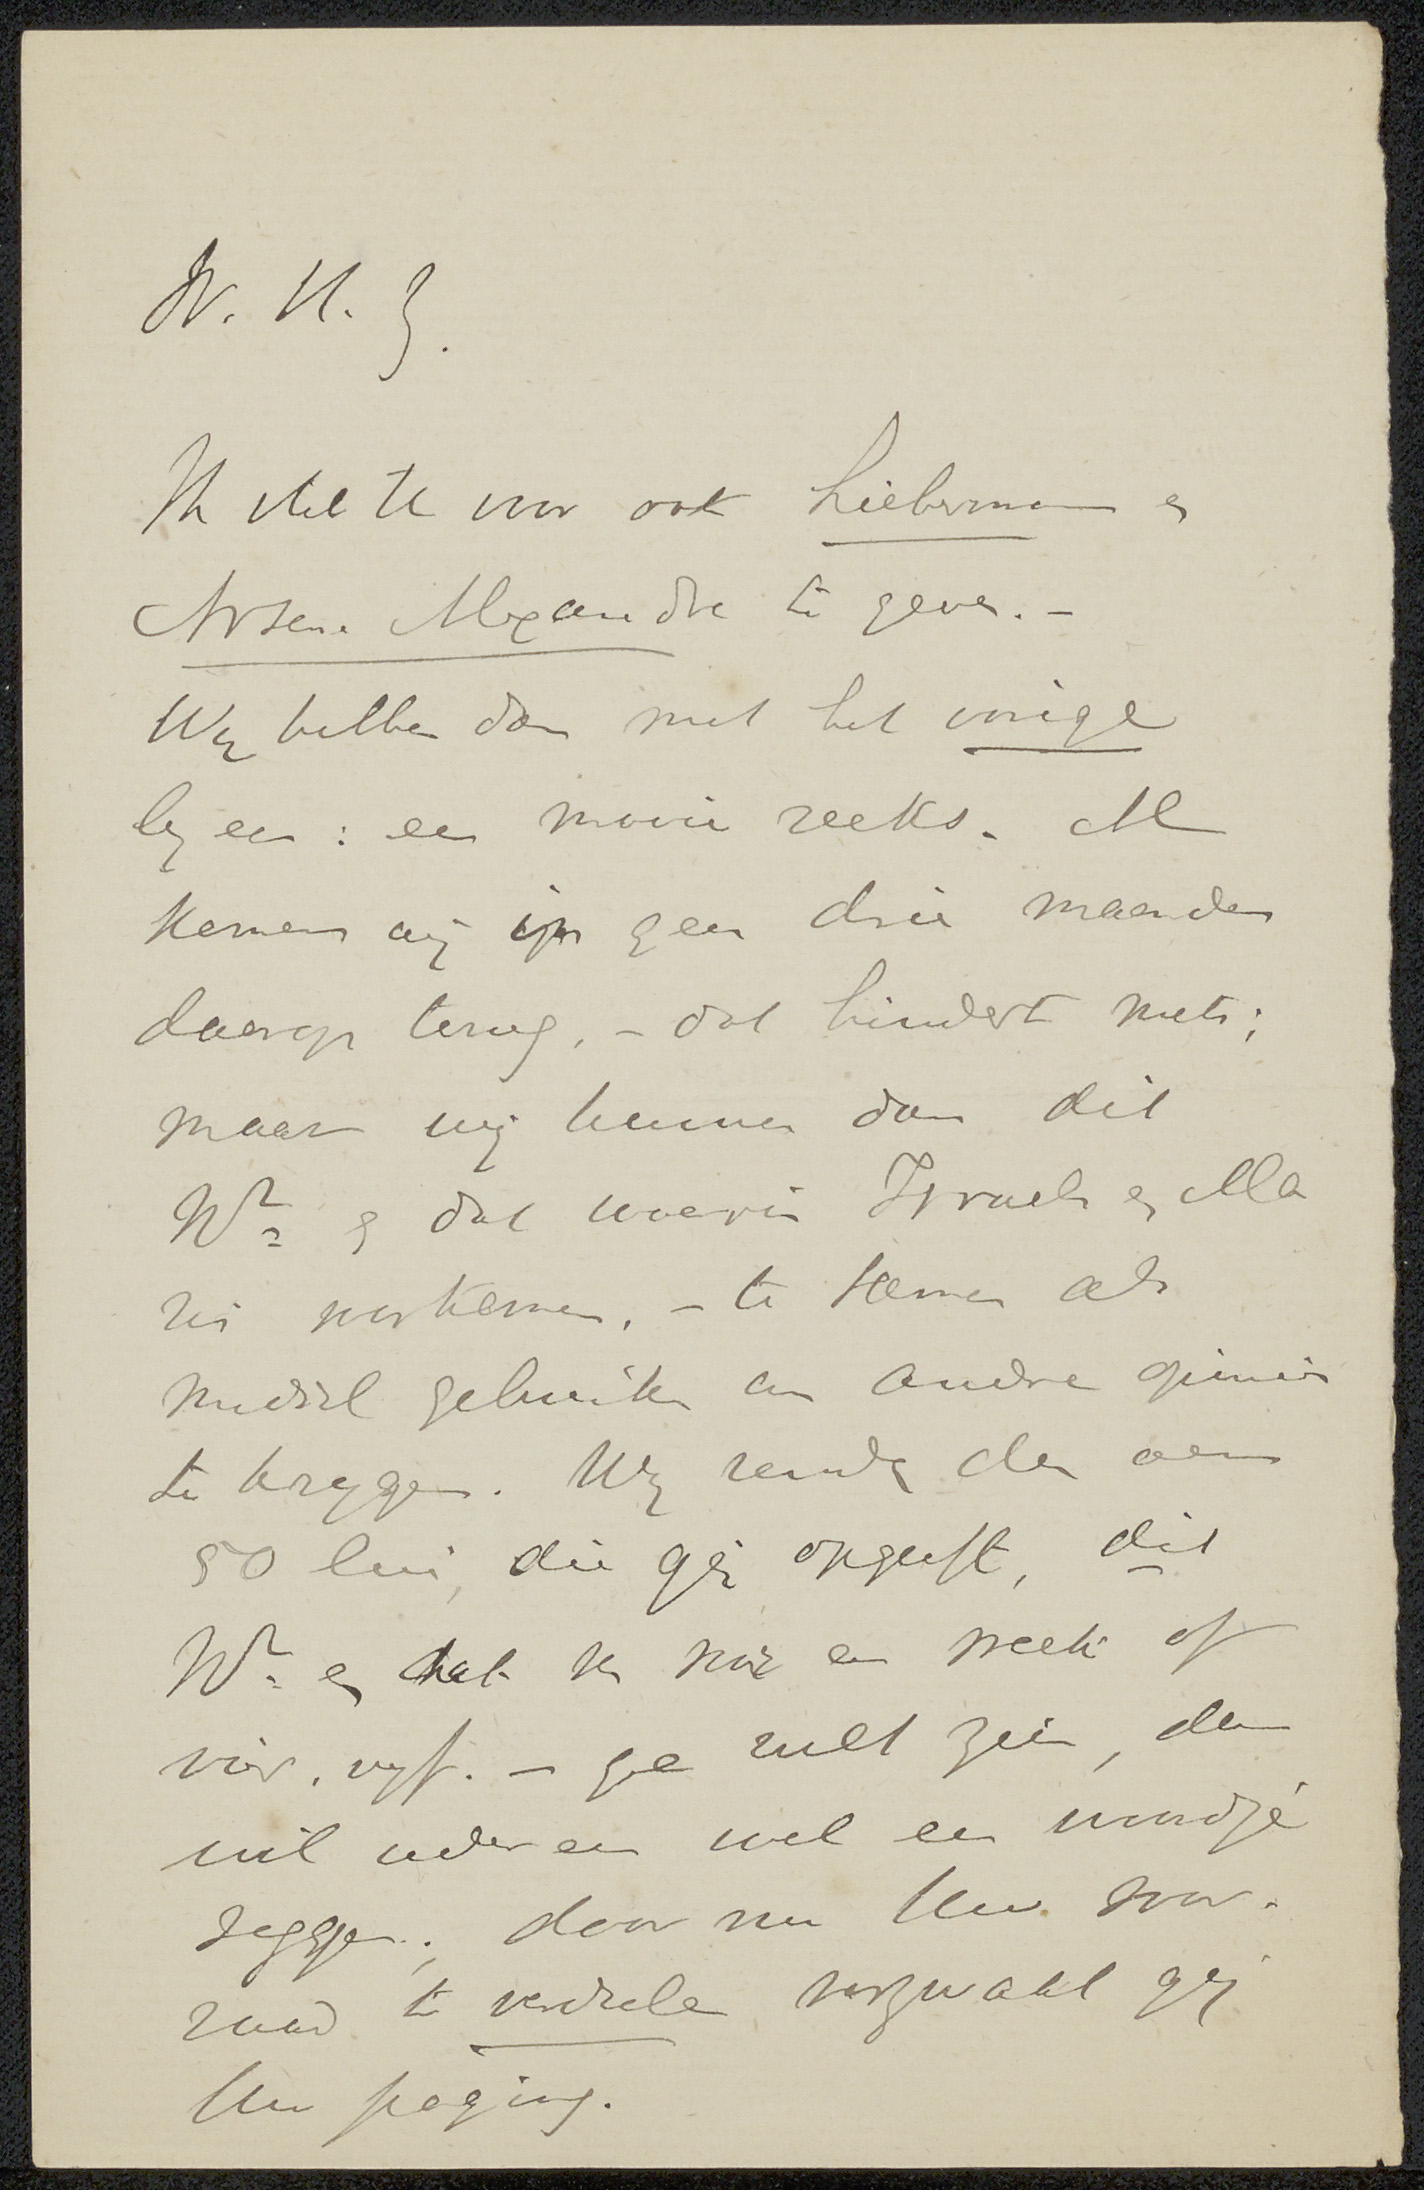 W. H. Z.
Ik stel U voor ook Lieberman en
Arsene Alexandre te geven. –
Wij hebben dan met het vorige
bij een: een mooie reeks. Al
komen wij in geen drie maanden
daarop terug, – dat hindert niets;
maar wij kunnen dan dit
No en dat waarin Israels en Ma
ris voorkomen, – te samen als
middel gebruiken om andre opinies
te krijgen. Wij zenden dan aan
50 lui, die gij opgeeft, dit
No en dat van voor een week of
vier, vijf. – ge zult zien, dan
wil iedereen wel een woordje
zeggen; door nu Uw voor-
raad te verdeelen verzwakt gij
Uw poging.